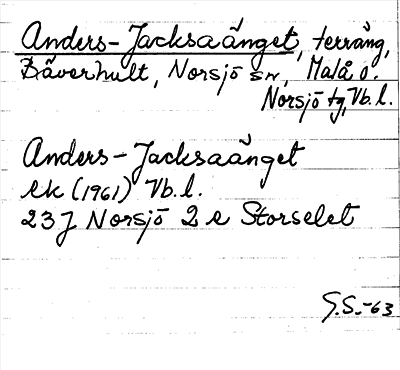 Anders-Jacksaänget, terräng,
Bäverhult, Norsjö sn, Malå o.
Norsjö tg, Vb.l.
Anders-Jacksaänget
ek (1961) Vb.l.
23J Norsjö 2 e Storselet
G.S.-63